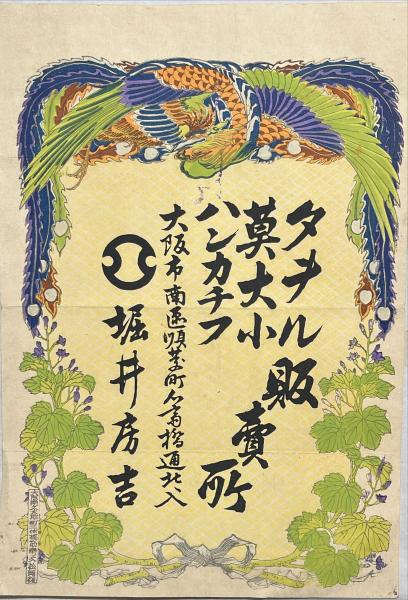 タヲル
莫大小
ハンカチフ
販賣所
大阪市南區順慶町心斎橋通北入
堀井房吉